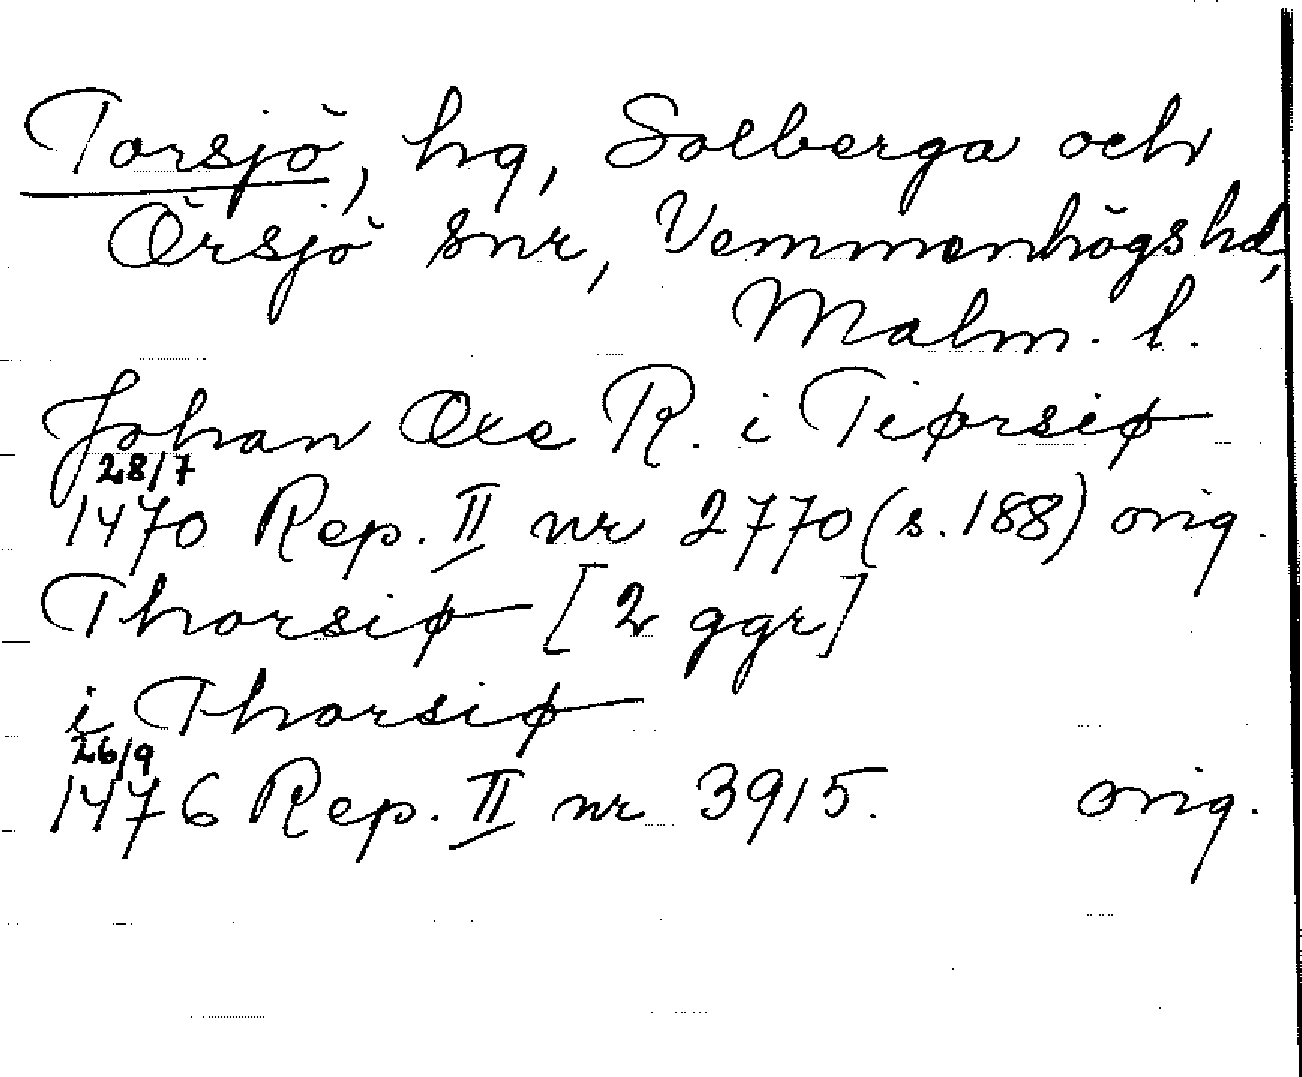 Torsjö, hg, Solberga och
Örsjö snr, Vemmenhögs hd,
Malm. l.
Johan Oxe R. i Tiørsiø
28/7
1470 Rep. II nr 2770 (s. 188) orig.
Thorsiø [2 ggr]
i Thorsiø
26/9
1476 Rep. II nr 3915. orig.